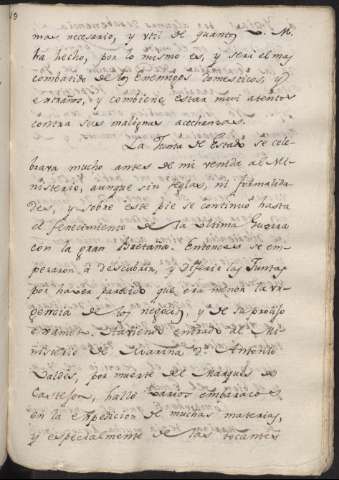 mas necesario, y util de quantos V. M.
ha hecho, por lo mismo es, y será el mas
combatido de los enemigos domesticos, y
extraños, y combiene estar mui atentos
contra sus malignas asechanzas.
La Junta de Estado se cele-
brava mucho antes de mi venida al Mi-
nisterio, aunque sin reglas, ni formalida-
des, y sobre este pie se continuó hasta
el fenecimiento de la ultima Guerra
con la gran Bretaña. Entonces se em-
pezaron á descuidar, y diferir las Juntas
por haver parecido que era menor la ur-
gencia de los negocios, y de su prolijo
examen. Haviendo entrado al Mi-
nisterio de Marina Dn. Antonio
Valdés, por muerte del Marques de
Castejon, halló varios embarazos
en la expedicion de muchas materias,
y especialmente de las tocantes